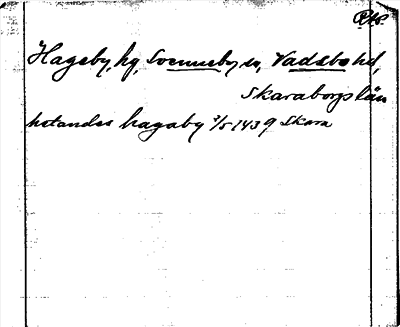 Hageby, hg, Svenneby sn, Vadsbo hd,
Skaraborgs län
hstandes hagaby 3/5 1439 Skara